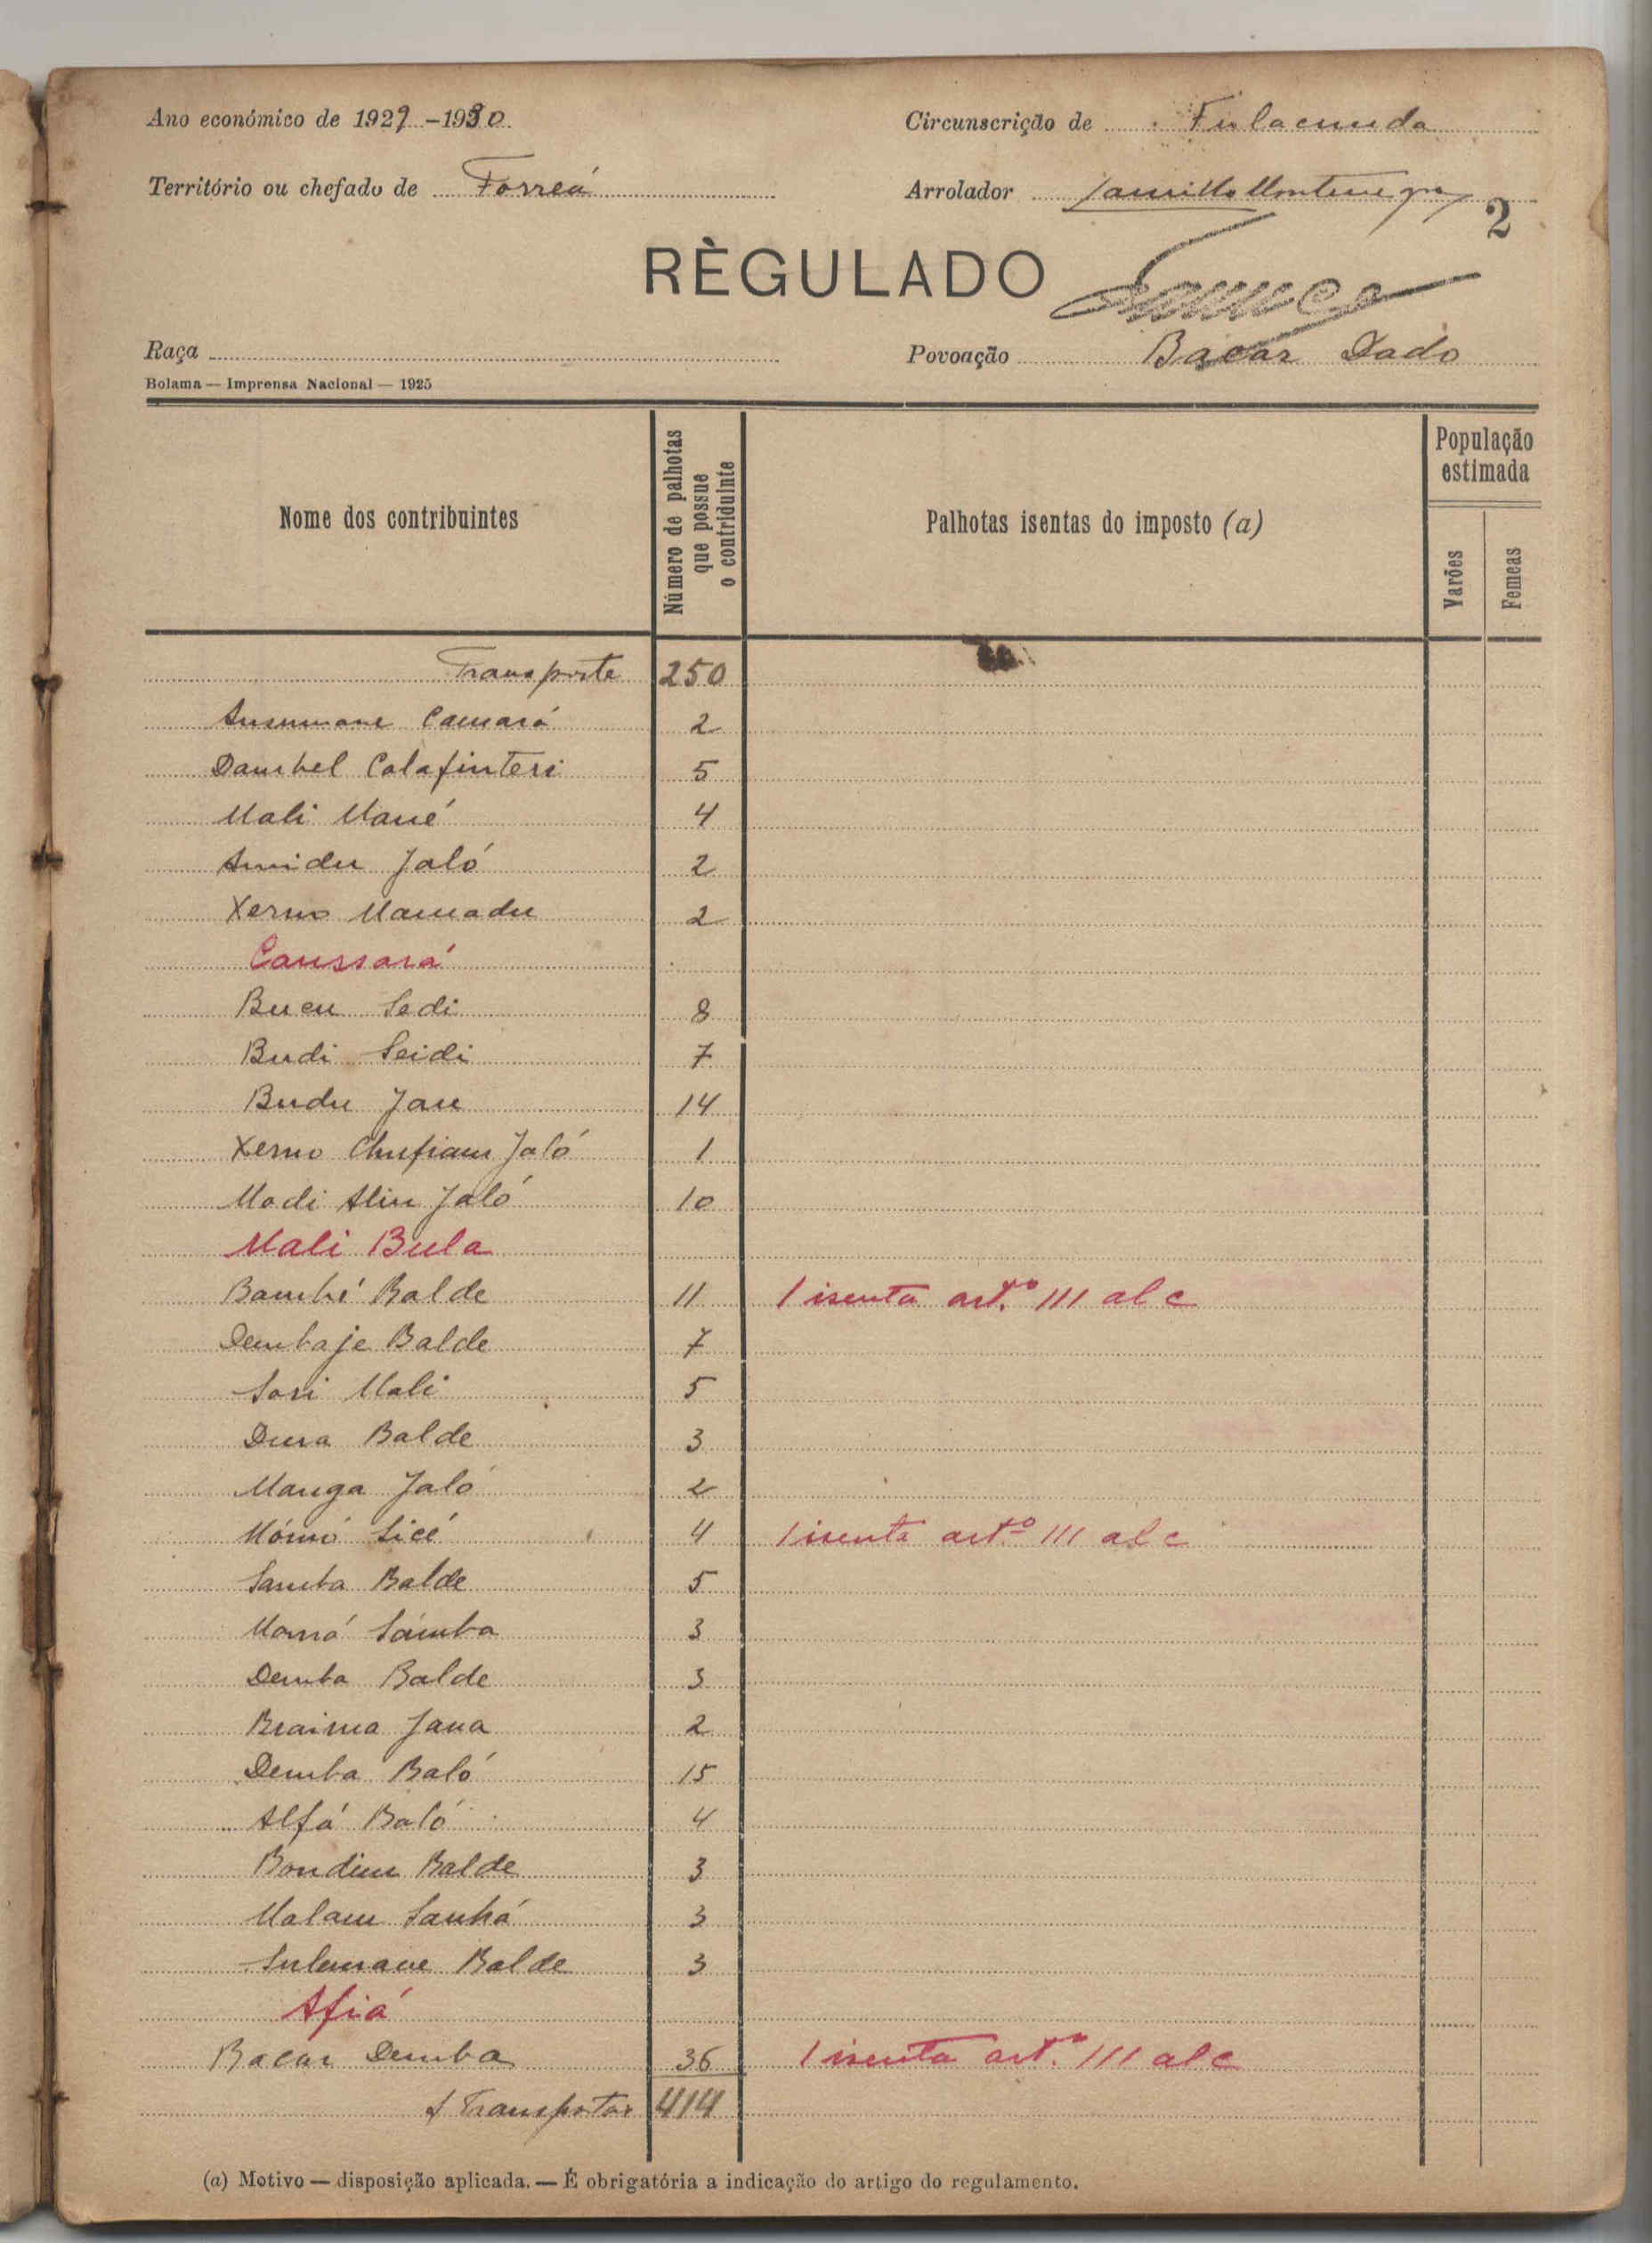 Ano económico de 1929-1930
Circunscrição de Fulacunda
Território ou chefado de Forreá
Arrolador Camillo Montenegro
2
RÈGULADO
Raça
Povoação Bacar Dado
Bolama — Imprensa Nacional — 1925
Nome dos contribuintes
Número de palhotas que possue o contriduinte
Palhotas isentas do imposto (a)
População estimada
Varões
Femeas
Transporte 250
Susumane Camará 2
Dambel Colafinteri 5
Mali Mané 4
Amidu Jaló 2
Xerno Mamadu 2
Caussará
Bucu Sedi 8
Budi Seidi 7
Budu Jau 14
Xerno Chufiam Jaló 1
Modi Aliu Jaló 10
Mali Bula
Bambé Balde 11 1 isenta art.º 111 al c
Dembaje Balde 7
Sori Mali 5
Dura Balde 3
Manga Jaló 2
Mómó Sicé 4 1 isenta artº 111 al c
Samba Balde 5
Mamá Samba 3
Demba Balde 3
Braima Jana 2
Demba Baló 15
Alfá Baló 4
Bondiu Balde 3
Malam Sanhá 3
Sulemane Balde 3
Afiá
Bacar Demba 36 1 isenta art.º 111 al c
A Transportar 414
(a) Motivo — disposição aplicada. — É obrigatória a indicação do artigo do regulamento.